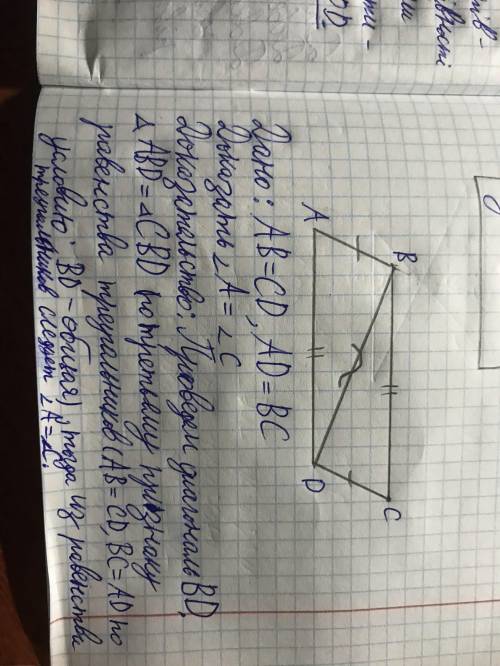 B
C
A
D
Дано: AB=CD, AD=BC
Доказать ∠A=∠C
Доказательство: Проведем диагональ BD,
△ABD=△CBD по третьему признаку
равенства треугольников (AB=CD, BC=AD по
условию; BD-общая), тогда из равенства
треугольников следует ∠A=∠C.